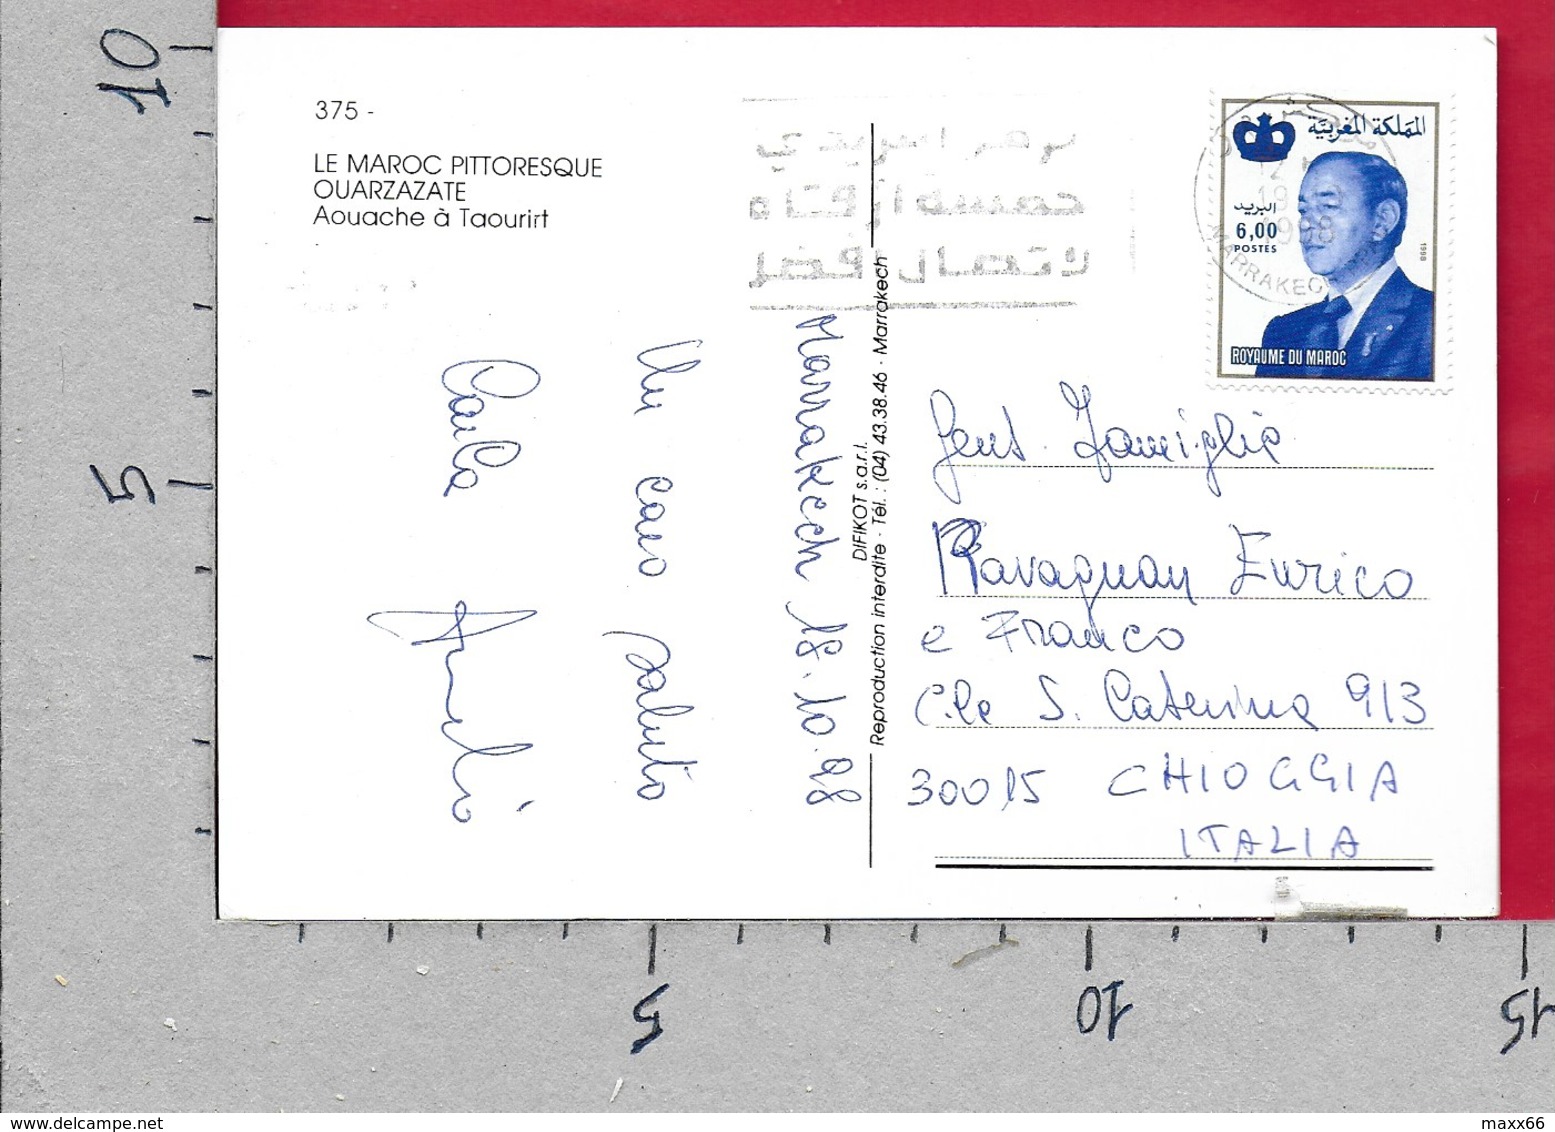 10
5
5
10
15
375 -
LE MAROC PITTORESQUE
OUARZAZATE
Aouache à Taourirt
المملكة المغربية
البريد
6,00
POSTES
1998
ROYAUME DU MAROC
19
1998
MARRAKECH
DIFIKOT s.a.r.l.
Reproduction interdite - Tél.: (04) 43.38.46 - Marrakech
Marrakech 18.10.98
Un caro saluto
Carla
Gent. Famiglia
Ravagnan Enrico
e Franco
C.le S. Caterina 913
30015 CHIOGGIA
ITALIA
maxx66